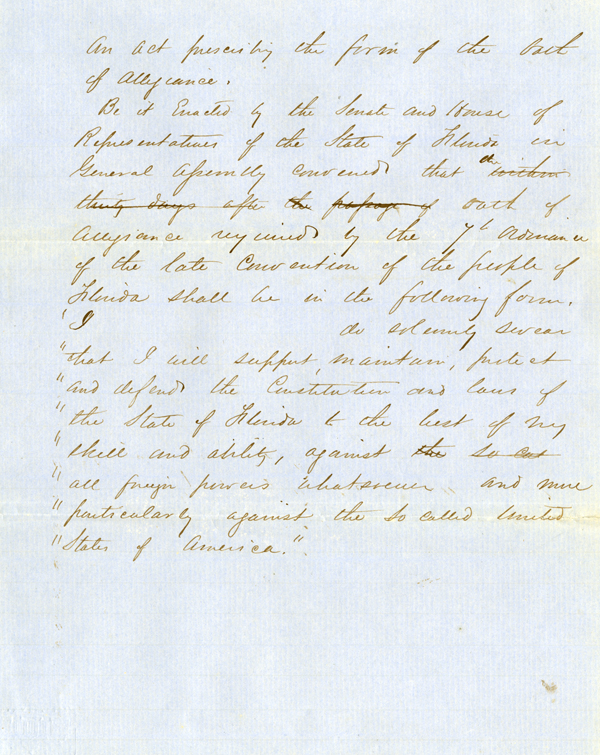 An act prescribing the form of the Oath
of Allegiance.
Be it Enacted by the Senate and House of
Representatives of the State of Florida in
General Assembly convened that the within
thirty days after the passage of oath of
Allegiance required by the 7th Ordinance
of the late Convention of the people of
Florida shall be in the following form.
"I do solemnly swear
"that I will support, maintain, protect
"and defend the Constitution and laws of
"the State of Florida to the best of my
"skill and ability, against the so cal
"all foreign powers whatsoever and more
"particularly against the so called United
"States of America."